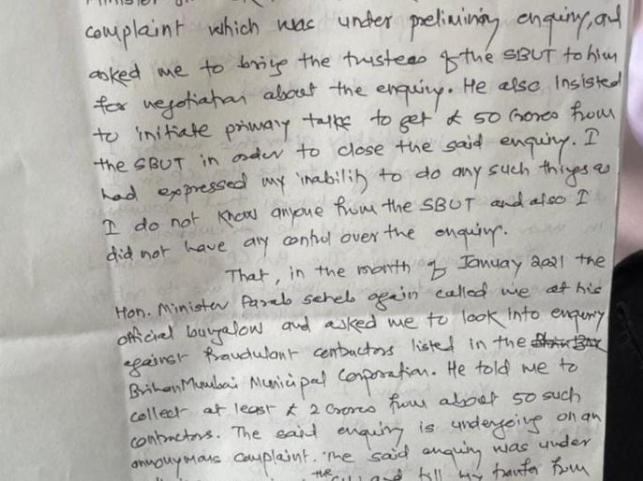 Minister
complaint which was under preliminary enquiry, and
asked me to bring the trustees of the SBUT to him
for negotiation about the enquiry. He also Insisted
to initiate primary talks to get ₹ 50 Crores from
the SBUT in order to close the said enquiry. I
had expressed my inability to do any such things as
I do not know anyone from the SBUT and also I
did not have any control over the enquiry.
That, in the month of January 2021 the
Hon. Minister Parab saheb again called me at his
official bungalow and asked me to look into enquiry
against fraudulant contractors listed in the
BrihanMumbai Municipal Corporation. He told me to
collect at least ₹ 2 Crores from about 50 such
contractors. The said enquiry is undergoing on an
annonymous complaint. The said enquiry was under
the and till my transfer from